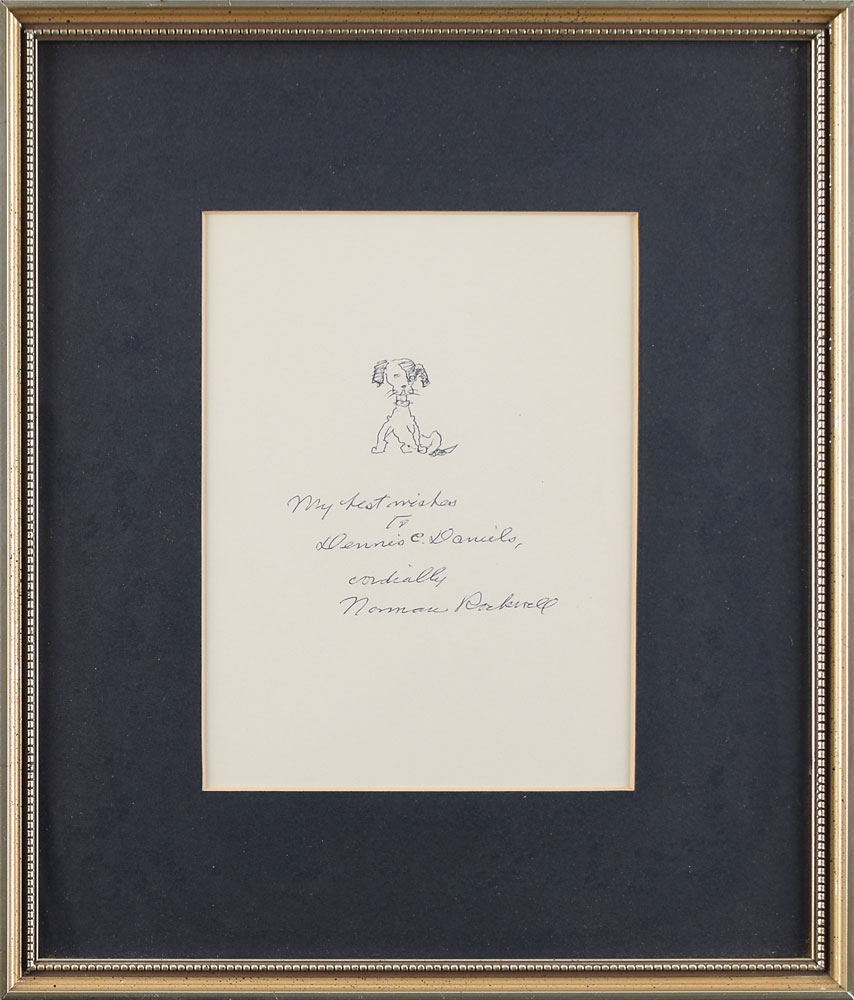 My best wishes
to
Dennis C. Daniels,
cordially
Norman Rockwell